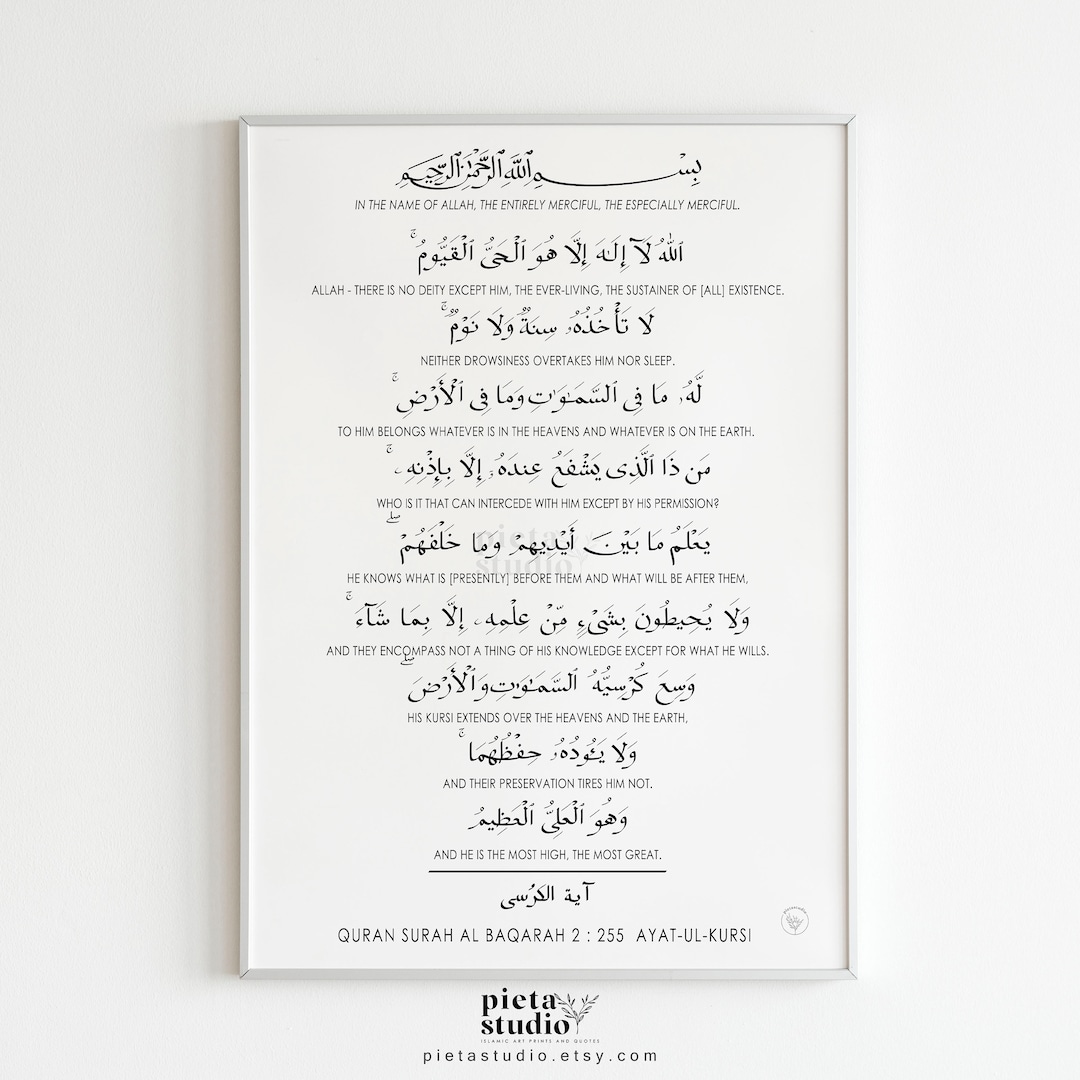 بِسْمِ ٱللَّهِ ٱلرَّحْمَٰنِ ٱلرَّحِيمِ
IN THE NAME OF ALLAH, THE ENTIRELY MERCIFUL, THE ESPECIALLY MERCIFUL.
ٱللَّهُ لَآ إِلَـٰهَ إِلَّا هُوَ ٱلْحَىُّ ٱلْقَيُّومُ ۚ
ALLAH - THERE IS NO DEITY EXCEPT HIM, THE EVER-LIVING, THE SUSTAINER OF [ALL] EXISTENCE.
لَا تَأْخُذُهُۥ سِنَةٌ وَلَا نَوْمٌ ۚ
NEITHER DROWSINESS OVERTAKES HIM NOR SLEEP.
لَّهُۥ مَا فِى ٱلسَّمَـٰوَٰتِ وَمَا فِى ٱلْأَرْضِ ۚ
TO HIM BELONGS WHATEVER IS IN THE HEAVENS AND WHATEVER IS ON THE EARTH.
مَن ذَا ٱلَّذِى يَشْفَعُ عِندَهُۥٓ إِلَّا بِإِذْنِهِۦ ۚ
WHO IS IT THAT CAN INTERCEDE WITH HIM EXCEPT BY HIS PERMISSION?
يَعْلَمُ مَا بَيْنَ أَيْدِيهِمْ وَمَا خَلْفَهُمْ ۖ
HE KNOWS WHAT IS [PRESENTLY] BEFORE THEM AND WHAT WILL BE AFTER THEM,
وَلَا يُحِيطُونَ بِشَىْءٍ مِّنْ عِلْمِهِۦٓ إِلَّا بِمَا شَآءَ ۚ
AND THEY ENCOMPASS NOT A THING OF HIS KNOWLEDGE EXCEPT FOR WHAT HE WILLS.
وَسِعَ كُرْسِيُّهُ ٱلسَّمَـٰوَٰتِ وَٱلْأَرْضَ ۖ
HIS KURSI EXTENDS OVER THE HEAVENS AND THE EARTH,
وَلَا يَـُٔودُهُۥ حِفْظُهُمَا ۚ
AND THEIR PRESERVATION TIRES HIM NOT.
وَهُوَ ٱلْعَلِىُّ ٱلْعَظِيمُ
AND HE IS THE MOST HIGH, THE MOST GREAT.
آية الكرسى
QURAN SURAH AL BAQARAH 2 : 255 AYAT-UL-KURSI
pietastudio
pieta
studio
pieta
studio
ISLAMIC ART PRINTS AND QUOTES
pietastudio.etsy.com